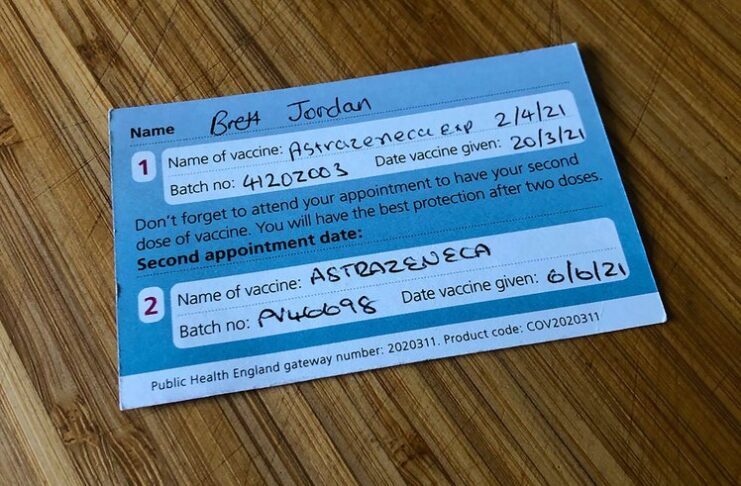 Name Brett Jordan
1 Name of vaccine: Astrazeneca exp 2/4/21
Batch no: 41202003 Date vaccine given: 20/3/21
Don't forget to attend your appointment to have your second
dose of vaccine. You will have the best protection after two doses.
Second appointment date:
2 Name of vaccine: ASTRAZENECA
Batch no: PV46698 Date vaccine given: 6/6/21
Public Health England gateway number: 2020311. Product code: COV2020311